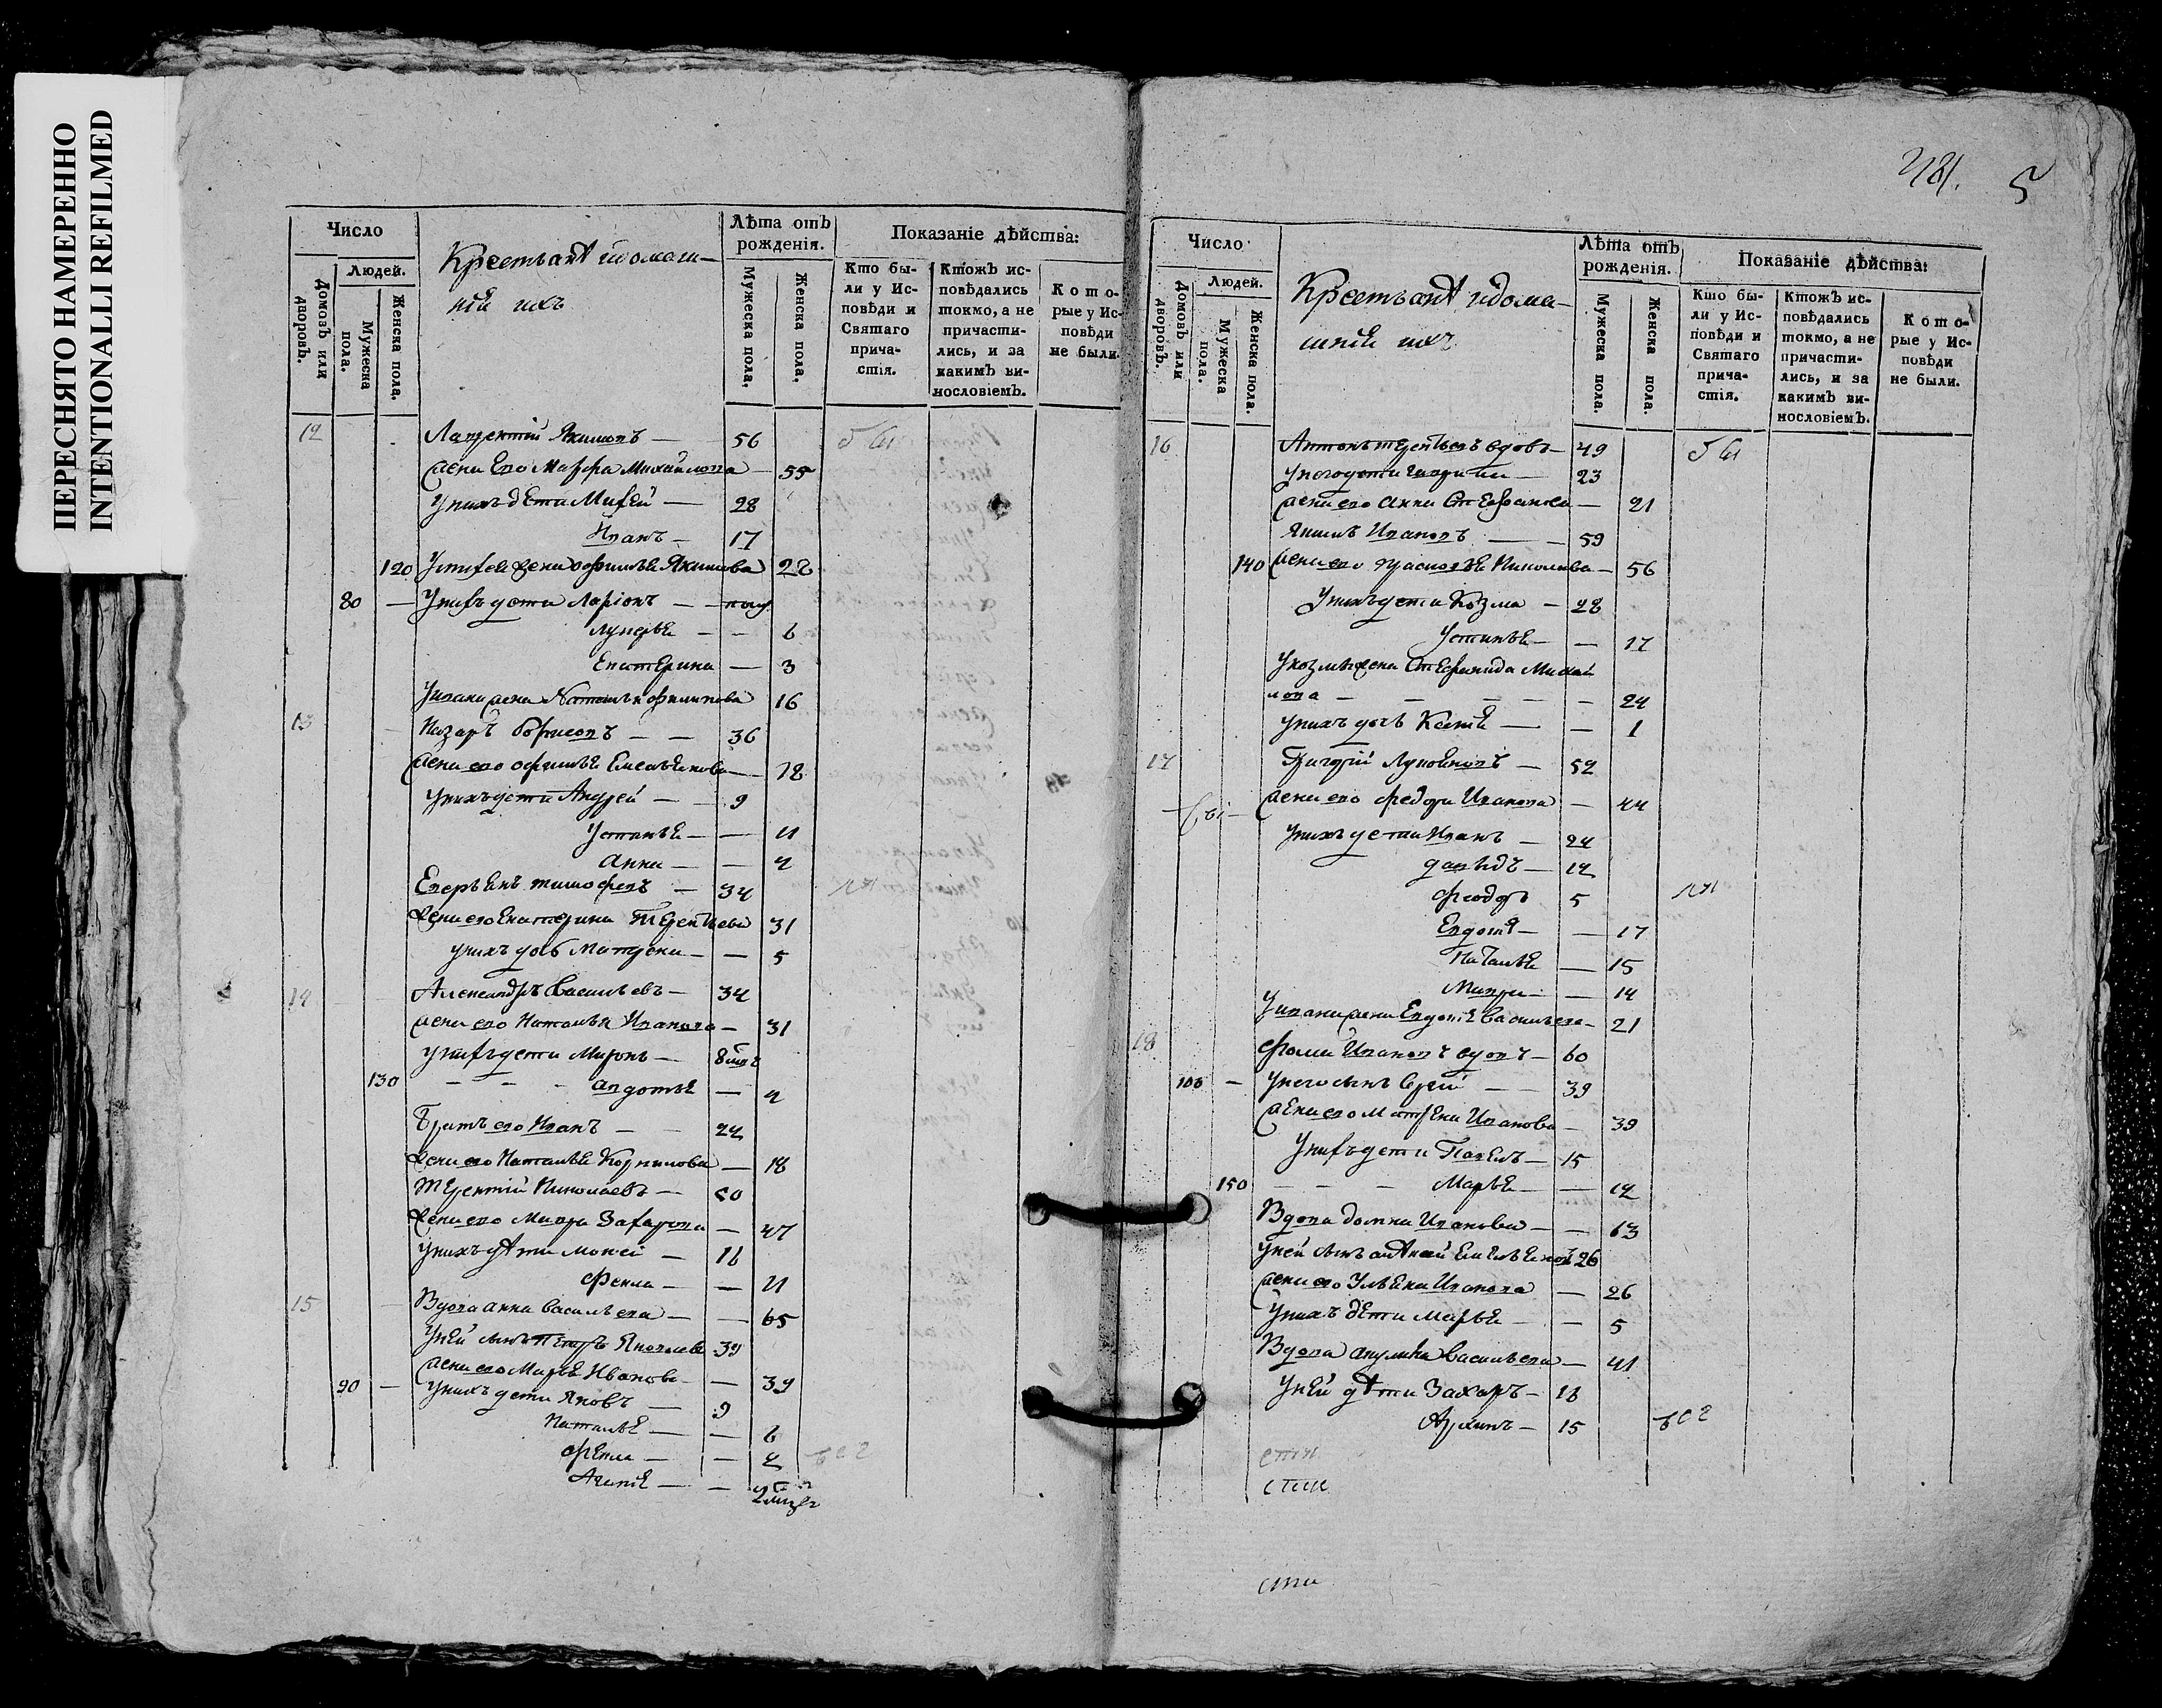 ПЕРЕСНЯТО НАМЕРЕННО
INTENTIONALLI REFILMED
Число
Людей.
Домовъ или дворовъ.
Мужеска пола.
Женска пола.
Крестьянъ идомаш-
нiе ихъ
Лѣта отъ рожденія.
Мужеска пола.
Женска пола.
Показаніе дѣйства:
Кто бы-
ли у Ис-
повѣди и
Святаго
прича-
стія.
Ктожъ ис-
повѣдались
токмо, а не
причасти-
лись, и за
какимъ ви-
нословіемъ.
Кото-
рые у Ис-
повѣди
не были.
12 Лаврентій Якимовъ — 56
жена его Марфа Михайлова — 55
Унихъ дети Михей — 28
Иванъ — 17
120 жена Якимова 28
80 — Унихъ дети Ларіонъ — —
Лукерья — — 6
Екатерина — 3
Уивана жена Наталья Филипова 16
13 Назаръ Борисовъ — — 36
жена его Емельянова — 18
Унихъ дети Андрей — 9
Устинья — — 11
Анна — — 4
Тимофевъ — 34
жена его Екатерина Терентьева 31
унихъ дочь Матрена — — 5
14 Александръ Васильевъ — 34
жена его Наталья Иванова — 31
унихъ дети Миронъ —
130 — — — Авдотья — 4
Братъ его Иванъ — — 24
жена его Наталья Корнилова — 18
Терентій Николаевъ — 50
жена его Мавра Захарова — 47
унихъ дѣти Мокей — 16
Фекла — — 11
15 Вдова Анна Васильева — — 65
Уней сынъ Петръ Яковлевъ 39
жена его Марья Иванова — — 39
90 — унихъ дети Яковъ — 9
Наталья — — 6
Фекла — — 4
Агапiя — —
481. 5
Число
Людей.
Домовъ или дворовъ.
Мужеска пола.
Женска пола.
Крестьянъ идома-
шнiе ихъ
Лѣта отъ рожденія.
Мужеска пола.
Женска пола.
Показаніе дѣйства:
Кто бы-
ли у Ис-
повѣди и
Святаго
прича-
стія.
Ктожъ ис-
повѣдались
токмо, а не
причасти-
лись, и за
какимъ ви-
нословіемъ.
Кото-
рые у Ис-
повѣди
не были.
16 Антонъ Терентьевъ вдовъ — 49
Унего дети Гаврила — 23
жена его Анна Стефанова — 21
Якимъ Ивановъ — — 59
140 жена его Николаева — 56
Унихъ дети Козма — 28
Устинья — — 17
Укозмы жена Стефанида Михай
лова — — — — — 24
унихъ дочь Ксенiя — — 1
17 Григорій — 52
жена его Федора Иванова — 44
унихъ дети Иванъ — 24
Давыдъ — 12
Феодоръ 5
Евдокiя — — 17
Наталья — 15
Мавра — — 14
Уивана жена Евдокiя Васильева — 21
18 Фома Ивановъ вдовъ — 60
100 — унего сынъ — — 39
жена его Матрена Иванова — 39
Унихъ дети Павелъ — 15
150 — — — Марья — — 12
Вдова Домна Иванова — — 63
уней сынъ Емельяновъ 26
жена его Ульяна Иванова — 26
Унихъ дети Марья — — 5
Вдова Акулина Васильева — 41
Уней дѣти Захаръ — 16
Архипъ — 15